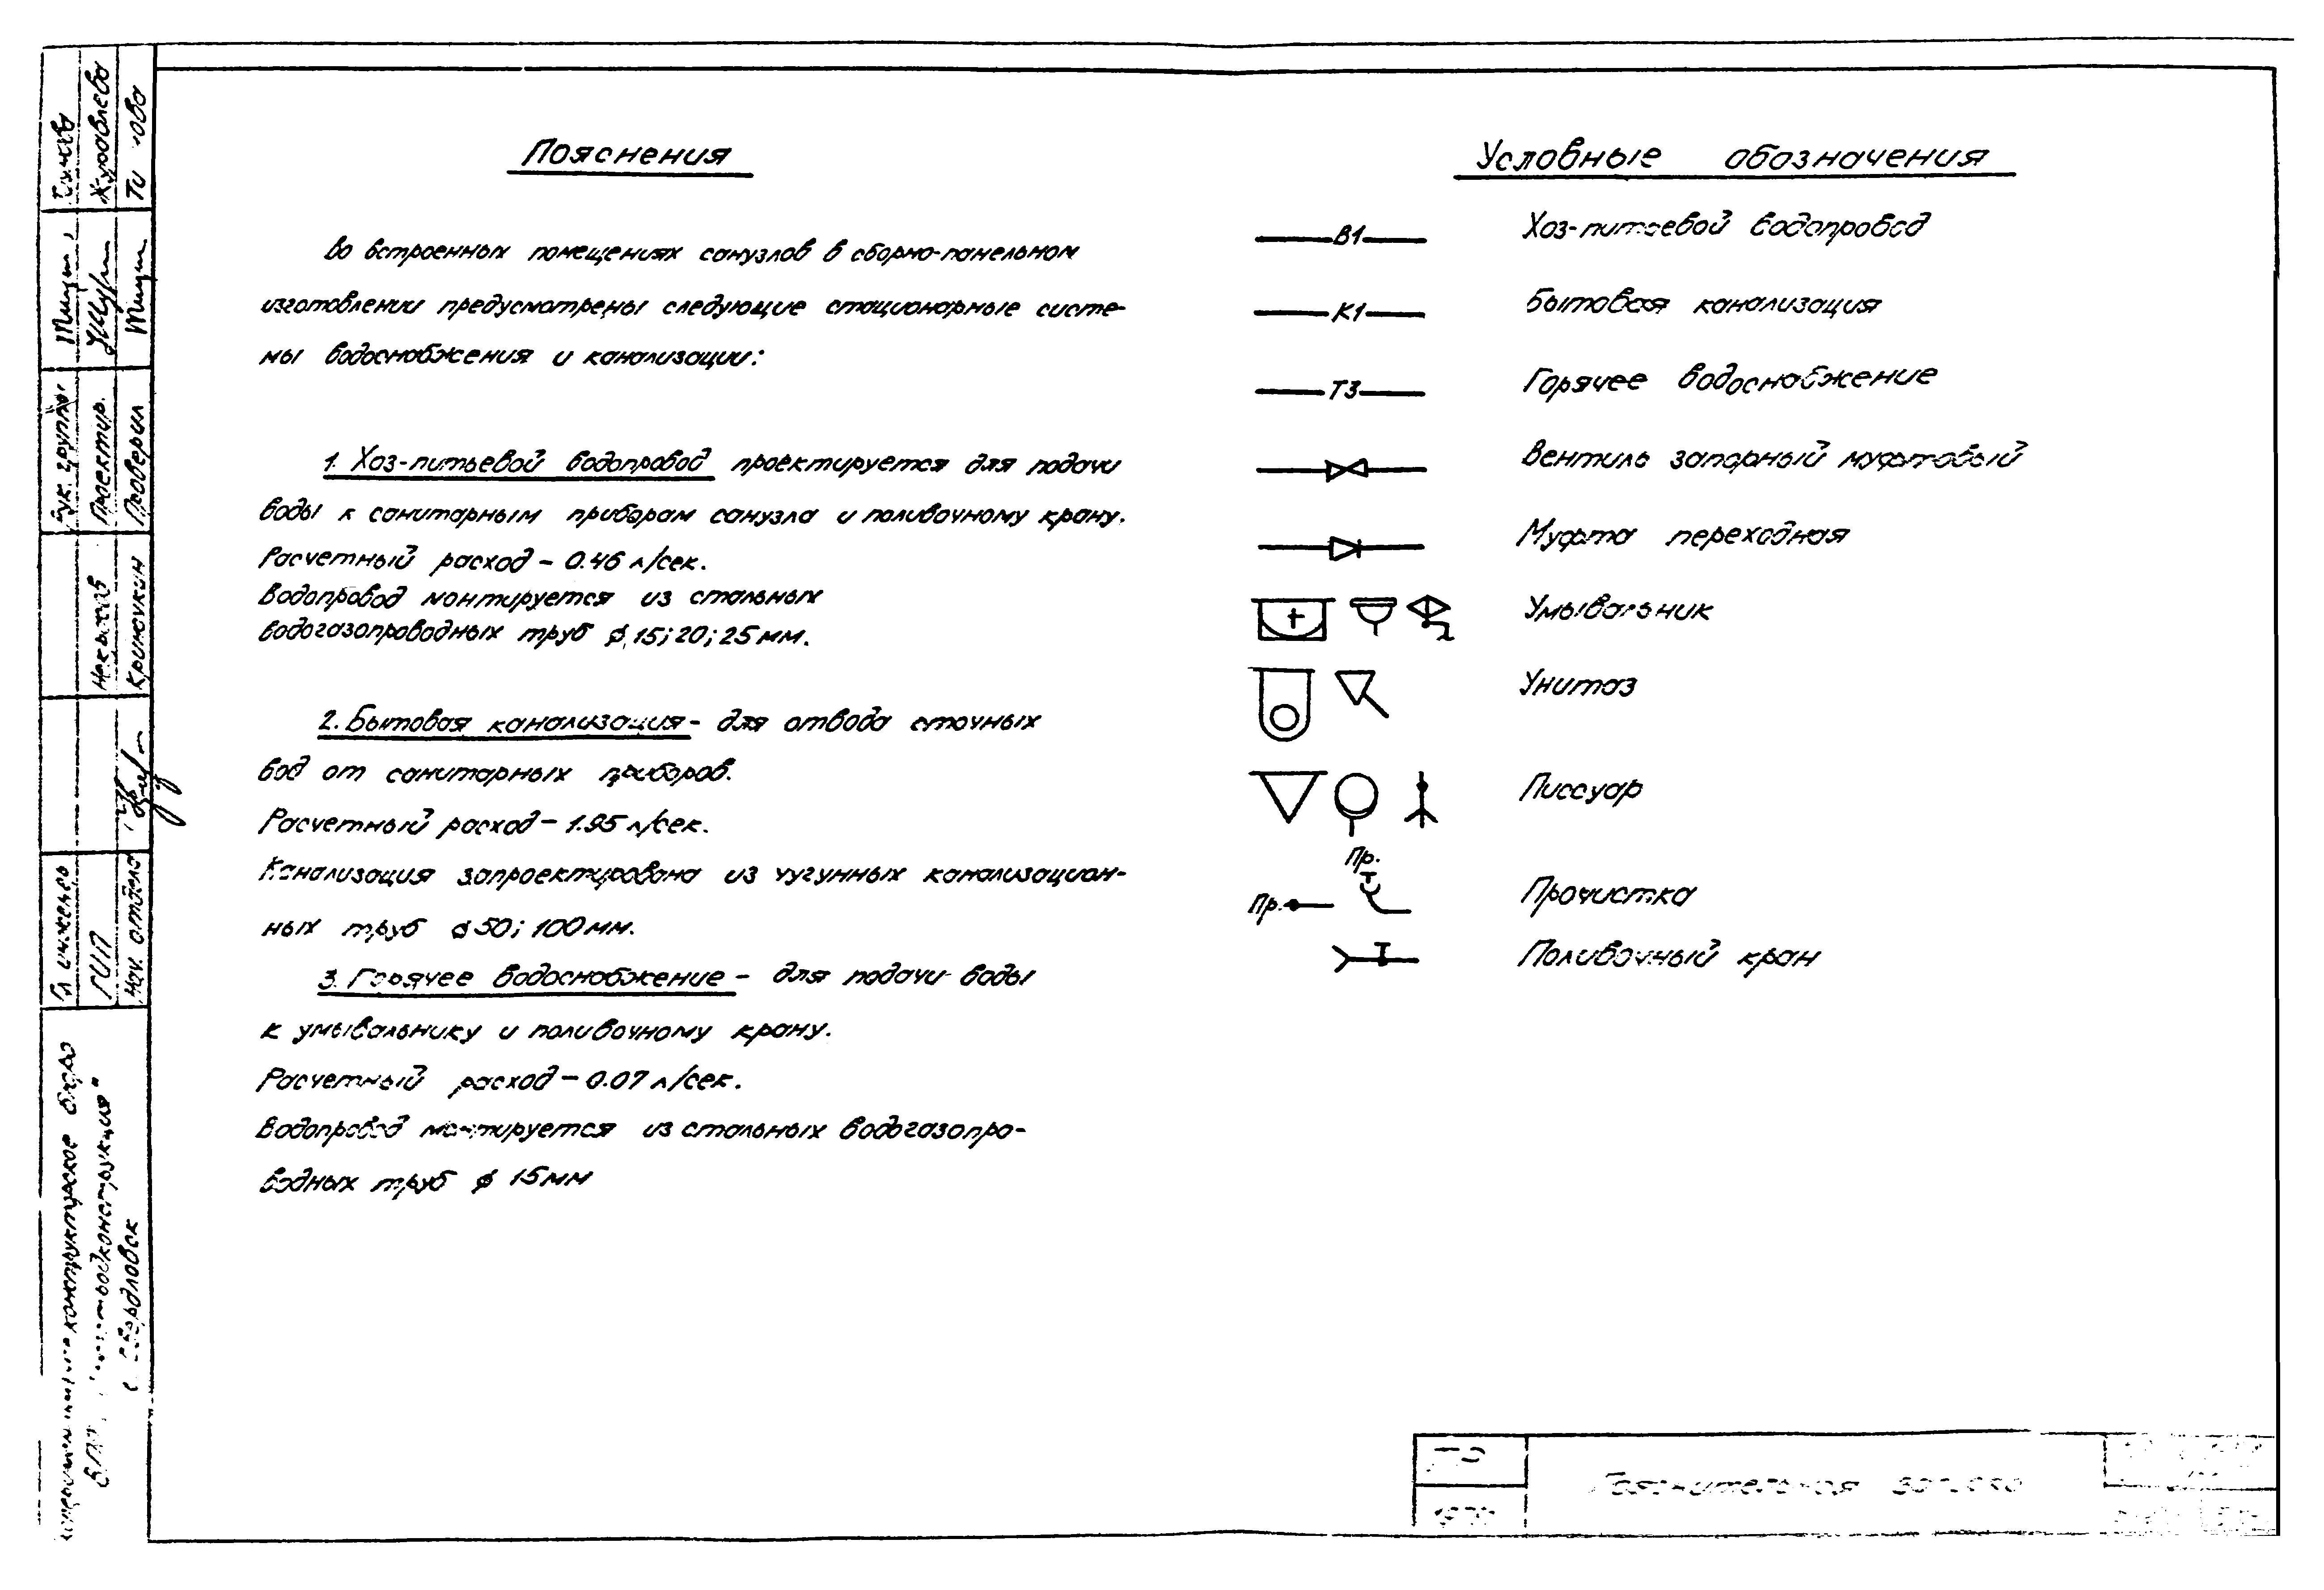 Пояснения
Во встроенных помещениях санузлов в сборно-панельном
изготовлении предусмотрены следующие стационарные систе-
мы водоснабжения и канализации:
1. Хоз-питьевой водопровод проектируется для подачи
воды к санитарным приборам санузла и поливочному крану.
Расчетный расход – 0.46 л/сек.
Водопровод монтируется из стальных
водогазопроводных труб ϕ 15; 20; 25 мм.
2. Бытовая канализация – для отвода сточных
вод от санитарных приборов.
Расчетный расход – 1.95 л/сек.
Канализация запроектирована из чугунных канализацион-
ных труб ϕ 50; 100 мм.
3. Горячее водоснабжение – для подачи воды
к умывальнику и поливочному крану.
Расчетный расход – 0.07 л/сек.
Водопровод монтируется из стальных водогазопро-
водных труб ϕ 15 мм
Условные обозначения
В1 Хоз-питьевой водопровод
К1 Бытовая канализация
Т3 Горячее водоснабжение
Вентиль запорный муфтовый
Муфта переходная
Умывальник
Унитаз
Писсуар
Пр. Пр. Прочистка
Поливочный кран
Гл инженер
ГИП
Нач. отдела
Крючкин
Рук. группы
Проектир.
Проверил
Журавлева
конструкторское бюро
г. Свердловск
ТР
Пояснительная записка